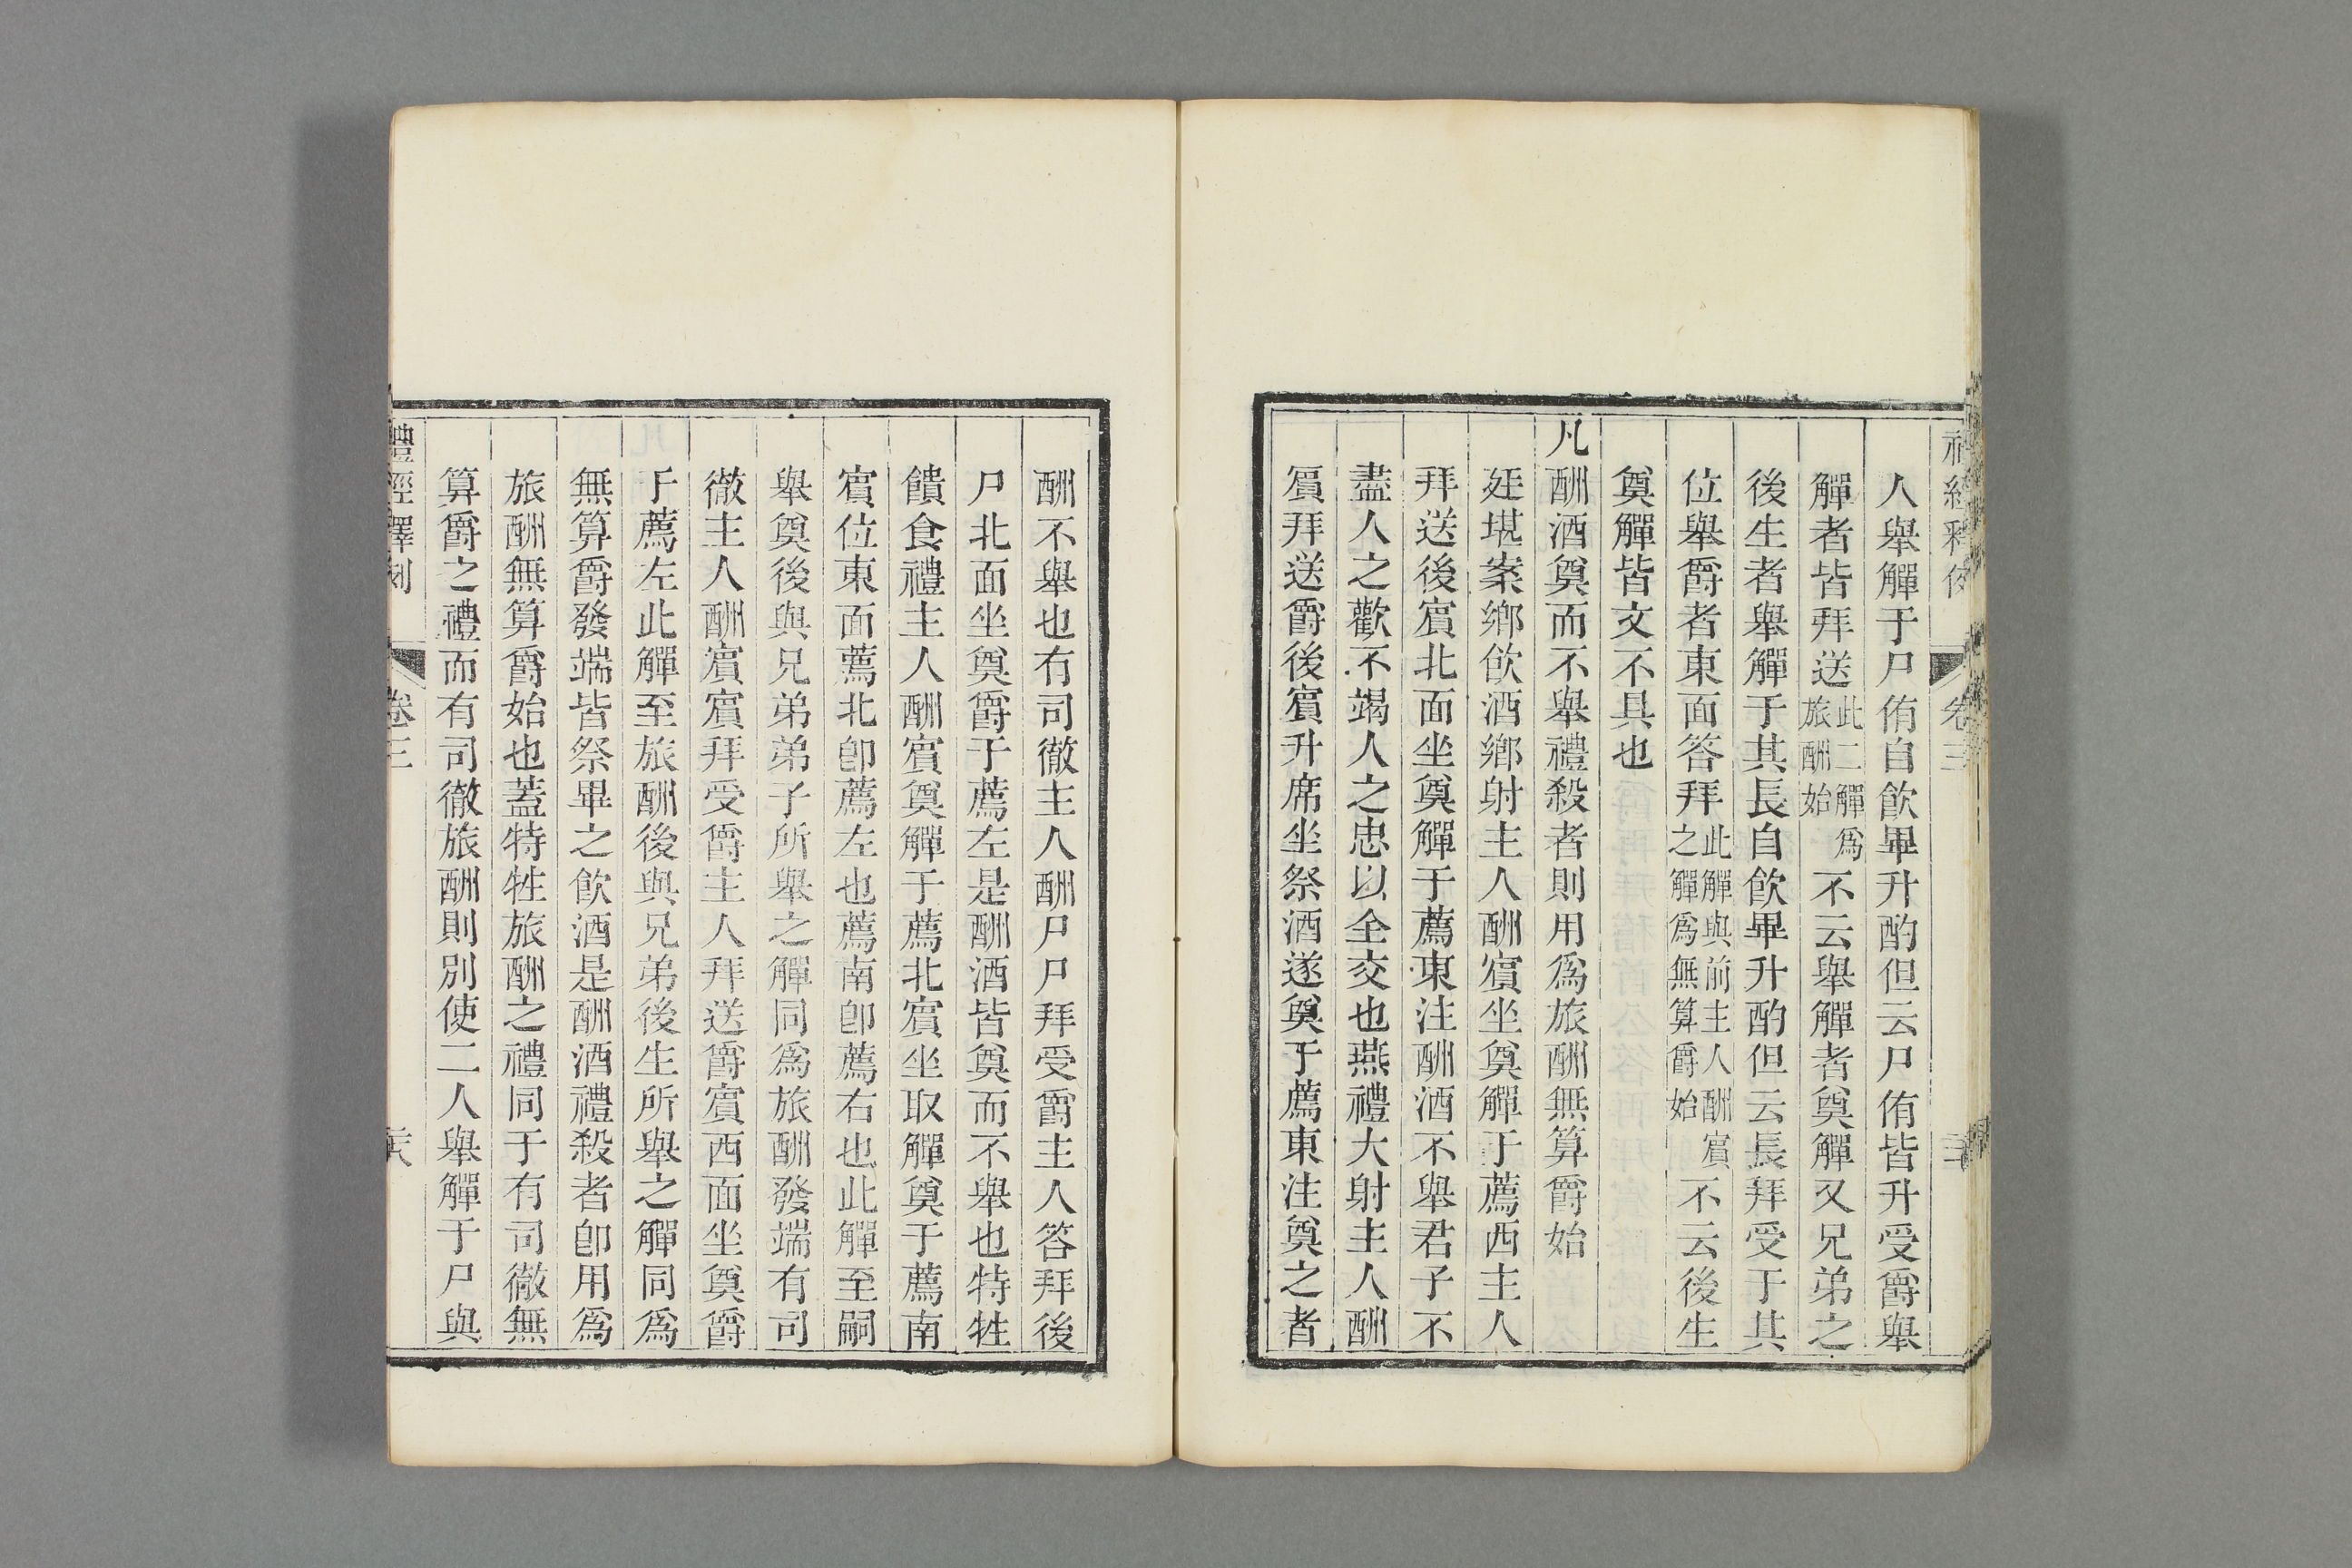 人舉觶于尸侑自飲畢升酌但云尸侑皆升受爵舉
觶者皆拜送此二觶爲旅酬始不云舉觶者奠觶又兄弟之
後生者舉觶于其長自飲畢升酌但云長拜受于其
位舉爵者東面答拜此觶與前主人酬賓之觶爲無算爵始不云後生
奠觶皆文不具也
凡酬酒奠而不舉禮殺者則用爲旅酬無算爵始
廷堪案鄉飲酒鄉射主人酬賓坐奠觶于薦西主人
拜送後賓北面坐奠觶于薦東注酬酒不舉君子不
盡人之歡不竭人之忠以全交也燕禮大射主人酬
賓拜送爵後賓升席坐祭酒遂奠于薦東注奠之者
酬不舉也有司徹主人酬尸尸拜受爵主人答拜後
尸北面坐奠爵于薦左是酬酒皆奠而不舉也特牲
饋食禮主人酬賓奠觶于薦北賓坐取觶奠于薦南
賓位東面薦北卽薦左也薦南卽薦右也此觶至嗣
舉奠後與兄弟弟子所舉之觶同爲旅酬發端有司
徹主人酬賓賓拜受爵主人拜送爵賓西面坐奠爵
于薦左此觶至旅酬後與兄弟後生所舉之觶同爲
無算爵發端皆祭畢之飲酒是酬酒禮殺者卽用爲
旅酬無算爵始也蓋特牲旅酬之禮同于有司徹無
算爵之禮而有司徹旅酬則別使二人舉觶于尸與
禮經釋例 卷三